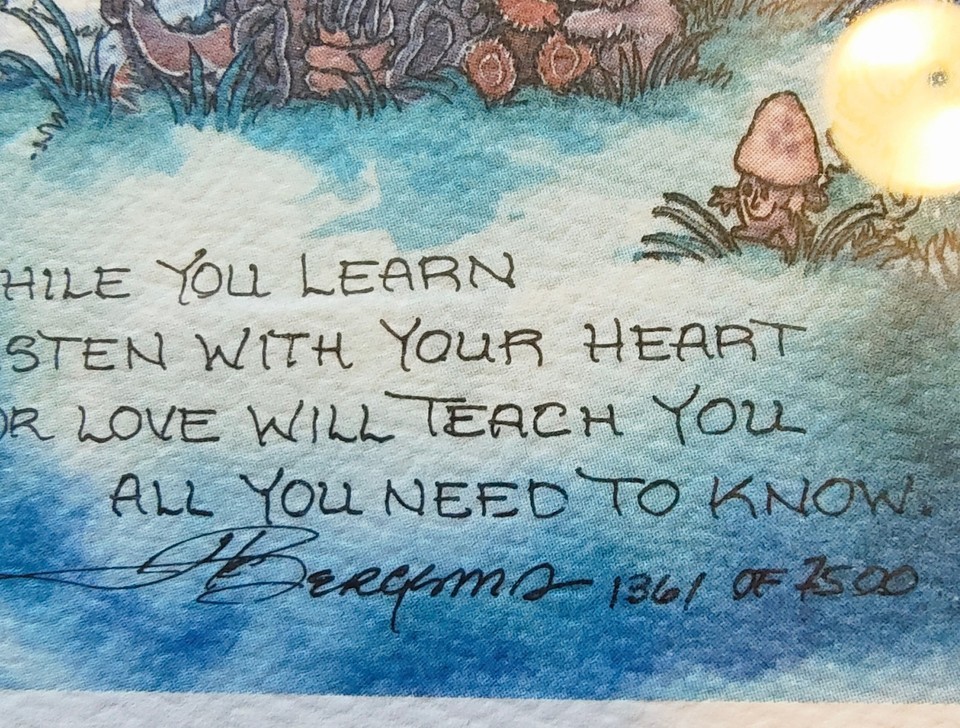 HILE YOU LEARN
STEN WITH YOUR HEART
OR LOVE WILL TEACH YOU
ALL YOU NEED TO KNOW.
Bergsma 1361 OF 7500